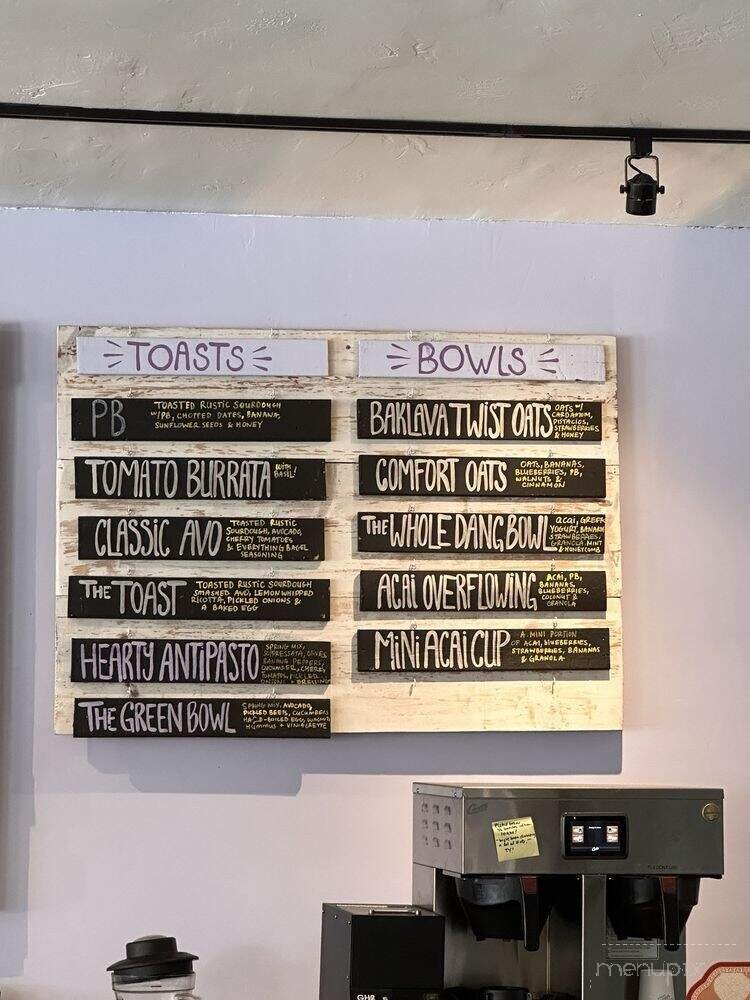 TOASTS
PB
TOASTED RUSTIC SOURDOUGH
W/PB, CHOPPED DATES, BANANA,
SUNFLOWER SEEDS & HONEY
TOMATO BURRATA
WITH
BASIL!
CLASSIC AVO
TOASTED RUSTIC
SOURDOUGH, AVOCADO,
CHERRY TOMATOES
& EVERYTHING BAGEL
SEASONING
THE TOAST
TOASTED RUSTIC SOURDOUGH
SMASHED AVO, LEMON WHIPPED
RICOTTA, PICKLED ONIONS &
A BAKED EGG
HEARTY ANTIPASTO
SPRING MIX,
SOPRESSATA, OLIVES,
BANANA PEPPERS,
CUCUMBER, CHERRY
TOMATOES, PICKLED
ONIONS + DRESSING
THE GREEN BOWL
SPRING MIX, AVOCADO,
PICKLED BEETS, CUCUMBERS
HARD-BOILED EGG, WALNUTS
HUMMUS + VINAIGRETTE
BOWLS
BAKLAVA TWIST OATS
OATS W/
CARDAMOM,
PISTACIOS,
STRAWBERRIES
& HONEY
COMFORT OATS
OATS, BANANAS,
BLUEBERRIES, PB,
WALNUTS &
CINNAMON
THE WHOLE DANG BOWL
acai, GREEK
YOGURT, BANANA
STRAWBERRIES,
GRANOLA, MINT
& HONEYCOMB
ACAI OVERFLOWING
ACAI, PB,
BANANAS,
BLUEBERRIES,
COCONUT &
GRANOLA
MINI ACAI CUP
A MINI PORTION
OF ACAI, BLUEBERRIES,
STRAWBERRIES, BANANAS
& GRANOLA
TY!
menupix